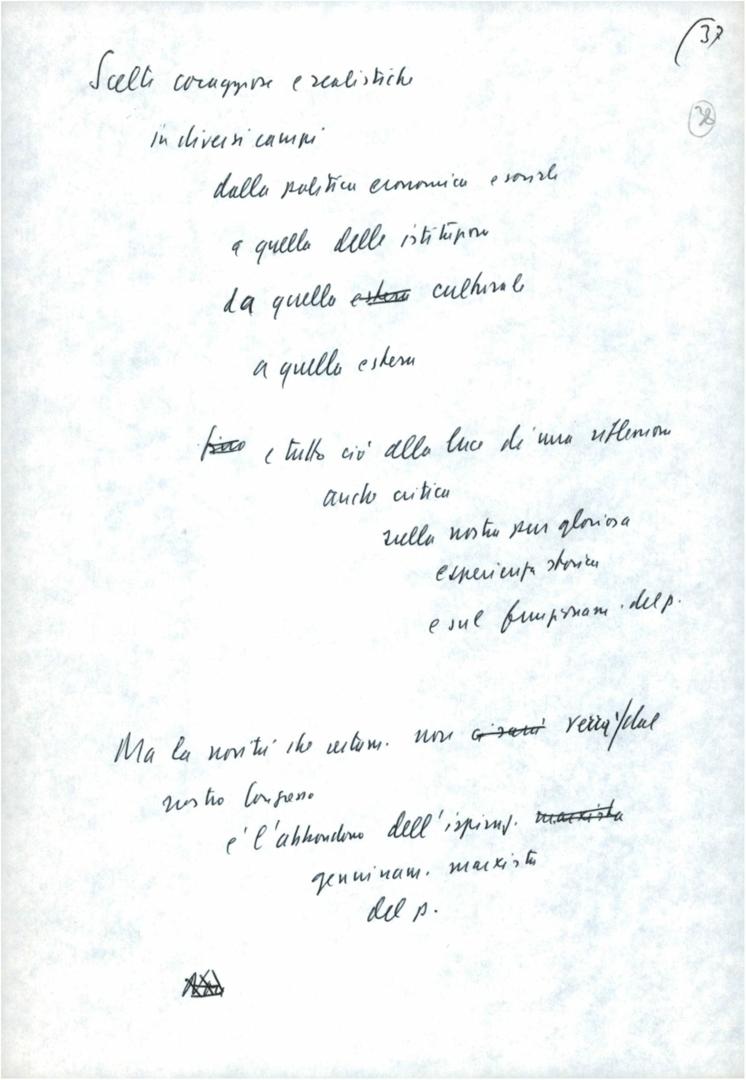 37
38
Scelte coraggiose e realistiche
in diversi campi
dalla politica economica e sociale
a quella delle istituzioni
da quella estera culturale
a quella estera
fino e tutto ciò alla luce di una riflessione
anche critica
sulla nostra pur gloriosa
esperienza storica
e sul funzionam. del p.
Ma la novità che certam. non ci sarà verrà dal
nostro Congresso
è l'abbandono dell'ispiraz. marxista
genuinam. marxista
del p.